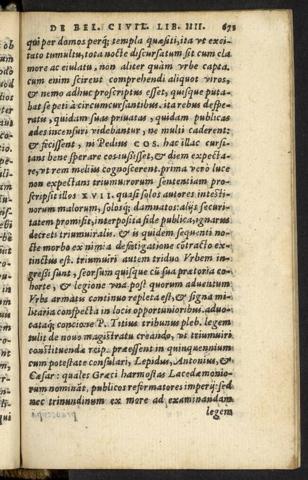 DE BEL. CIVIL. LIB. IIII. 673
qui per domos perq; templa quæsiti, ita vt exci-
tato tumultu, tota nocte discursatum sit cum cla
more ac eiulatu, non aliter quàm vrbe capta.
cum enim scirent comprehendi aliquot viros,
& nemo adhuc proscriptus esset, quisque puta-
bat se peti à circumcursantibus. ita rebus despe-
ratis, quidam suas priuatas, quidam publicas
ædes incensuri videbantur, ne multi caderent:
& fecissent, ni Pedius COS. hac illac cursi-
tans bene sperare eos iussisset, & diem expecta-
re, vt rem melius cognoscerent. prima verò luce
non expectans triumuirorum sententiam pro-
scripsit illos XVII. quasi solos autores intesti-
norum malorum, solosq; damnatos: alijs securi-
tatem promisit, interposita fide publica, ignarus
decreti triumuiralis. & is quidem sequenti no-
cte morbo ex nimia defatigatione cōtracto ex-
tinctus est. triumuiri autem triduo Vrbem in-
gressi sunt, seorsum quisque cū sua prætoria co-
horte, & legione vna. post quorum aduentum
Vrbs armatu continuo repleta est, & signa mi-
litaria conspecta in locis opportunioribus. aduo-
cataq; concione P. Titius tribunus pleb. legem
tulit de nouo magistratu creando, vt triumuiri
constituendæ reip. præessent in quinquennium
cum potestate consulari, Lepidus, Antonius, &
Cæsar: quales Græci harmostas Lacedæmonio-
rum nominãt, publicos reformatores imperij: sed
nec trinundinum ex more ad examinandam
legem